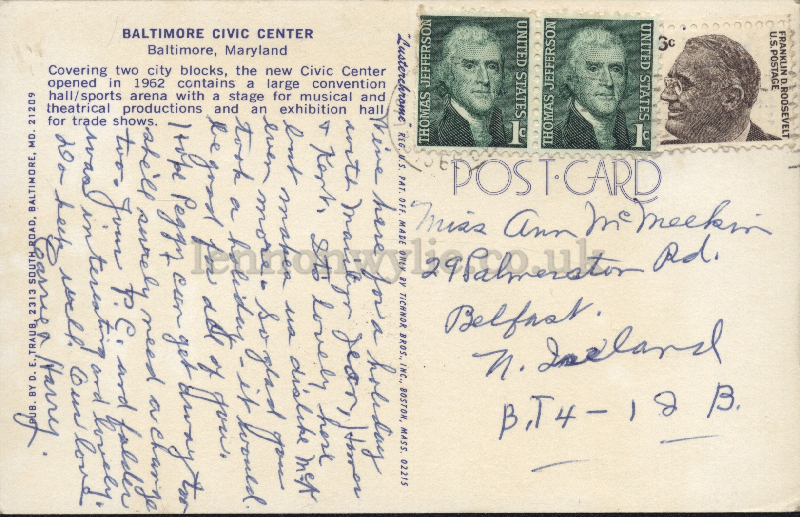 BALTIMORE CIVIC CENTER
Baltimore, Maryland
Covering two city blocks, the new Civic Center
opened in 1962 contains a large convention
hall/sports arena with a stage for musical and
theatrical productions and an exhibition hall
for trade shows.
We're here for a holiday
with Mauldor Jean,
+ Kert. It's lovely here
but makes us dislike McK
even more. So glad you
took a holiday - it would
be good for all of you.
Hope Peggy + can get away too
she'll surely need a change
too. Your P.C. and folder
was interesting and lovely.
Do keep well. Our love
Carrie & Harry.
PUB. BY D. E. TRAUB, 2313 SOUTH ROAD, BALTIMORE, MD. 21209
"Lusterchrome" REG. U.S. PAT. OFF. MADE ONLY BY TICHNOR BROS., INC., BOSTON, MASS. 02215
THOMAS JEFFERSON
UNITED STATES
1c
THOMAS JEFFERSON
UNITED STATES
1c
6c
FRANKLIN D. ROOSEVELT
U.S. POSTAGE
POST-CARD
Miss Ann McMeekin
29 Palmerston Rd.
Belfast.
N. Ireland
B.T4-12 B.
lennonwylie.co.uk